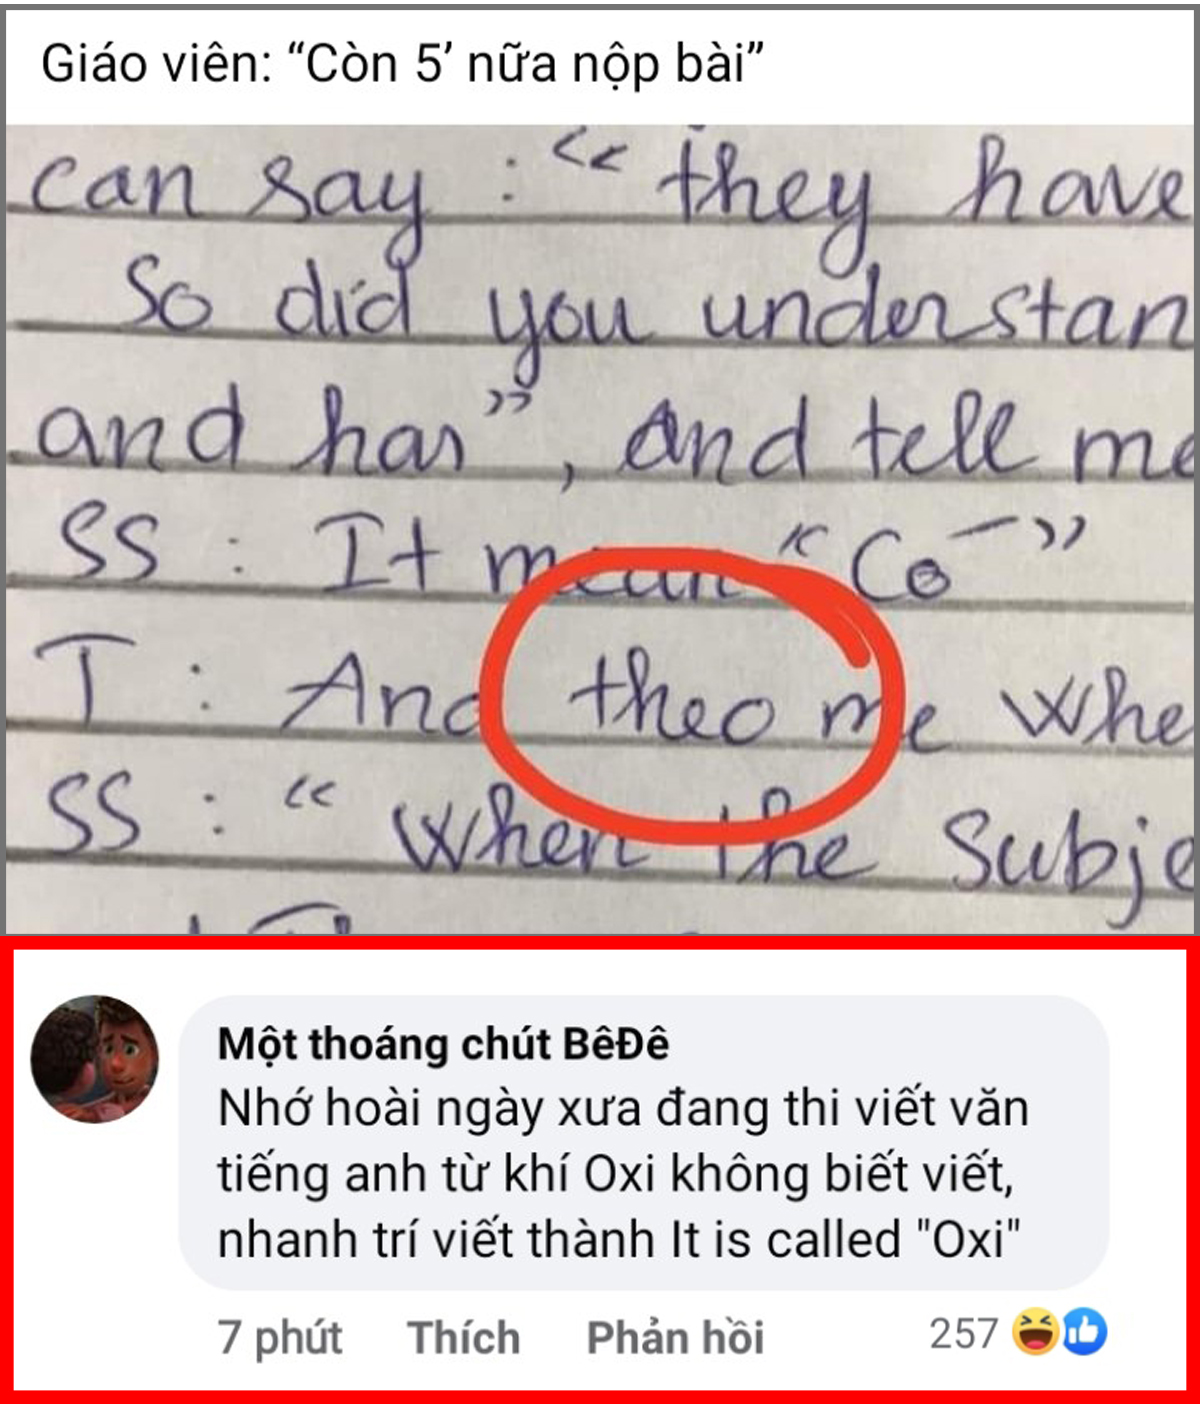 Giáo viên: “Còn 5’ nữa nộp bài”
can say : “ they have
So did you understan
and has” , and tell me
SS : It mean “ Co – ”
T : And theo me whe
SS : “ When the Subje
Một thoáng chút BêĐê
Nhớ hoài ngày xưa đang thi viết văn
tiếng anh từ khí Oxi không biết viết,
nhanh trí viết thành It is called "Oxi"
7 phút Thích Phản hồi 257